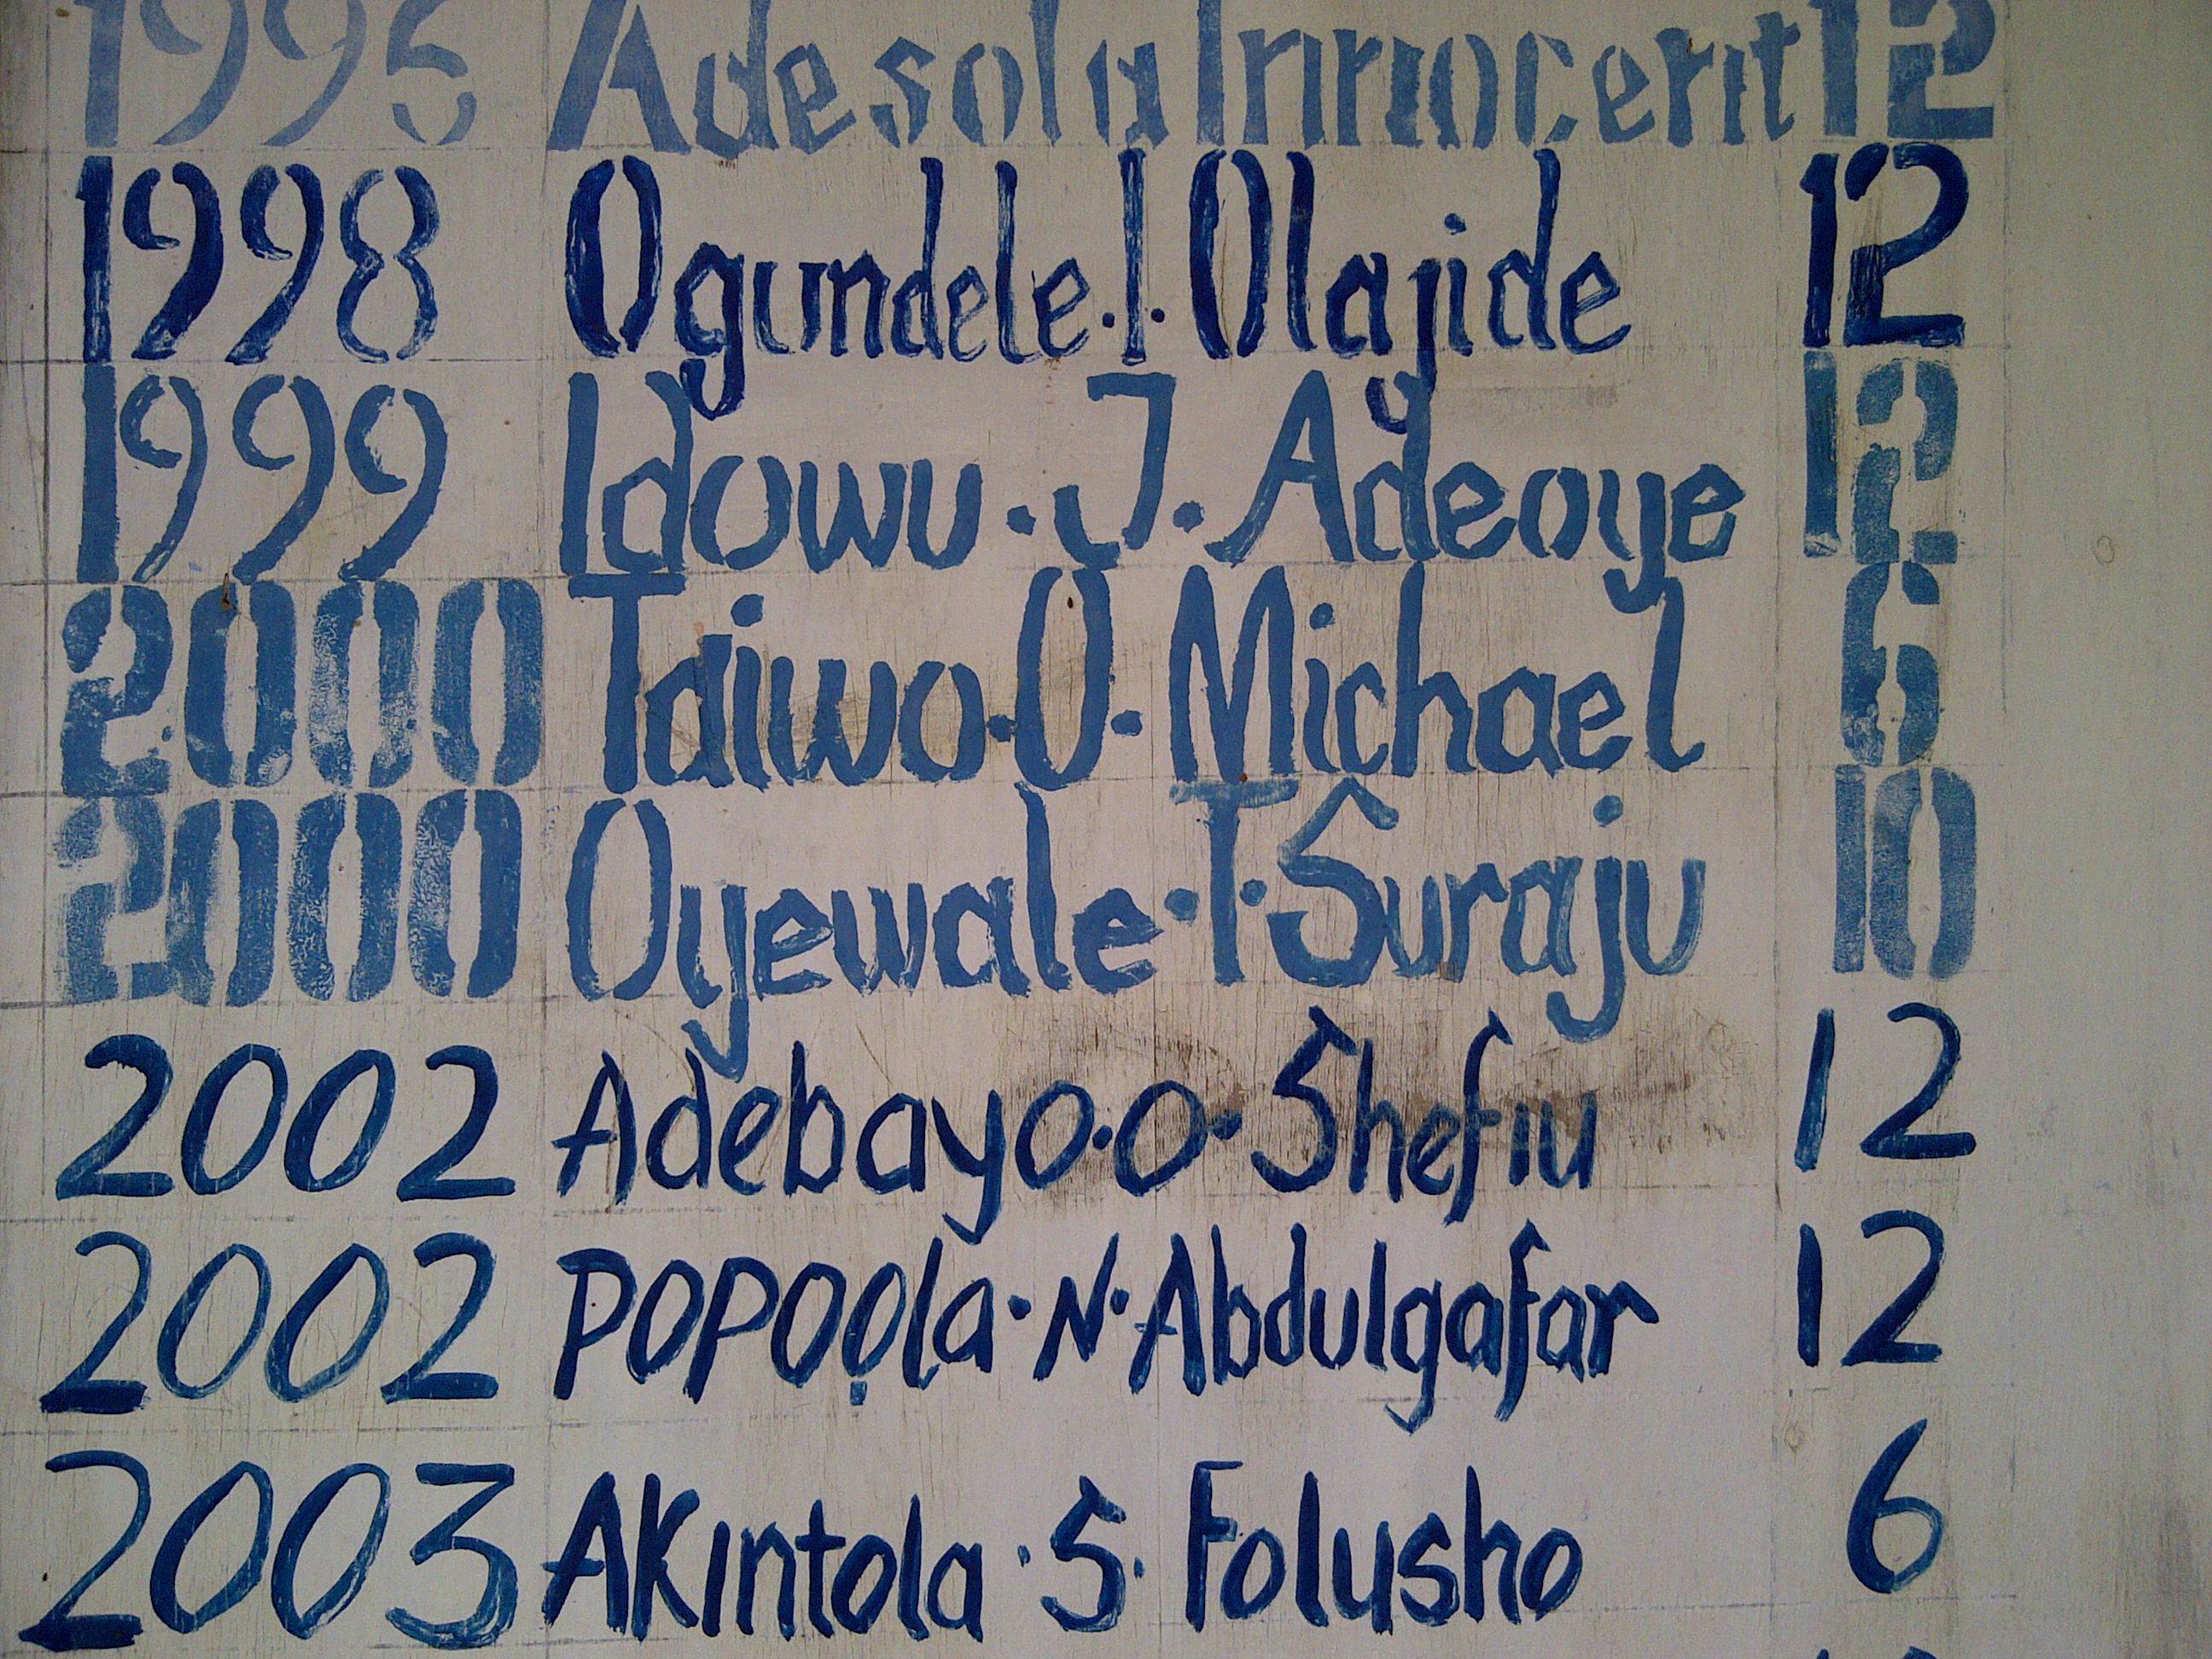 1996 Adesola Innocent 12
1998 Ogundele.I.Olajide 12
1999 Idowu.J.Adeoye 12
2000 Taiwo.O.Michael 6
2000 Oyewale.T.Suraju 10
2002 Adebayo.O.Shefiu 12
2002 POPOỌla.N.Abdulgafar 12
2003 AKintola.S.Folusho 6